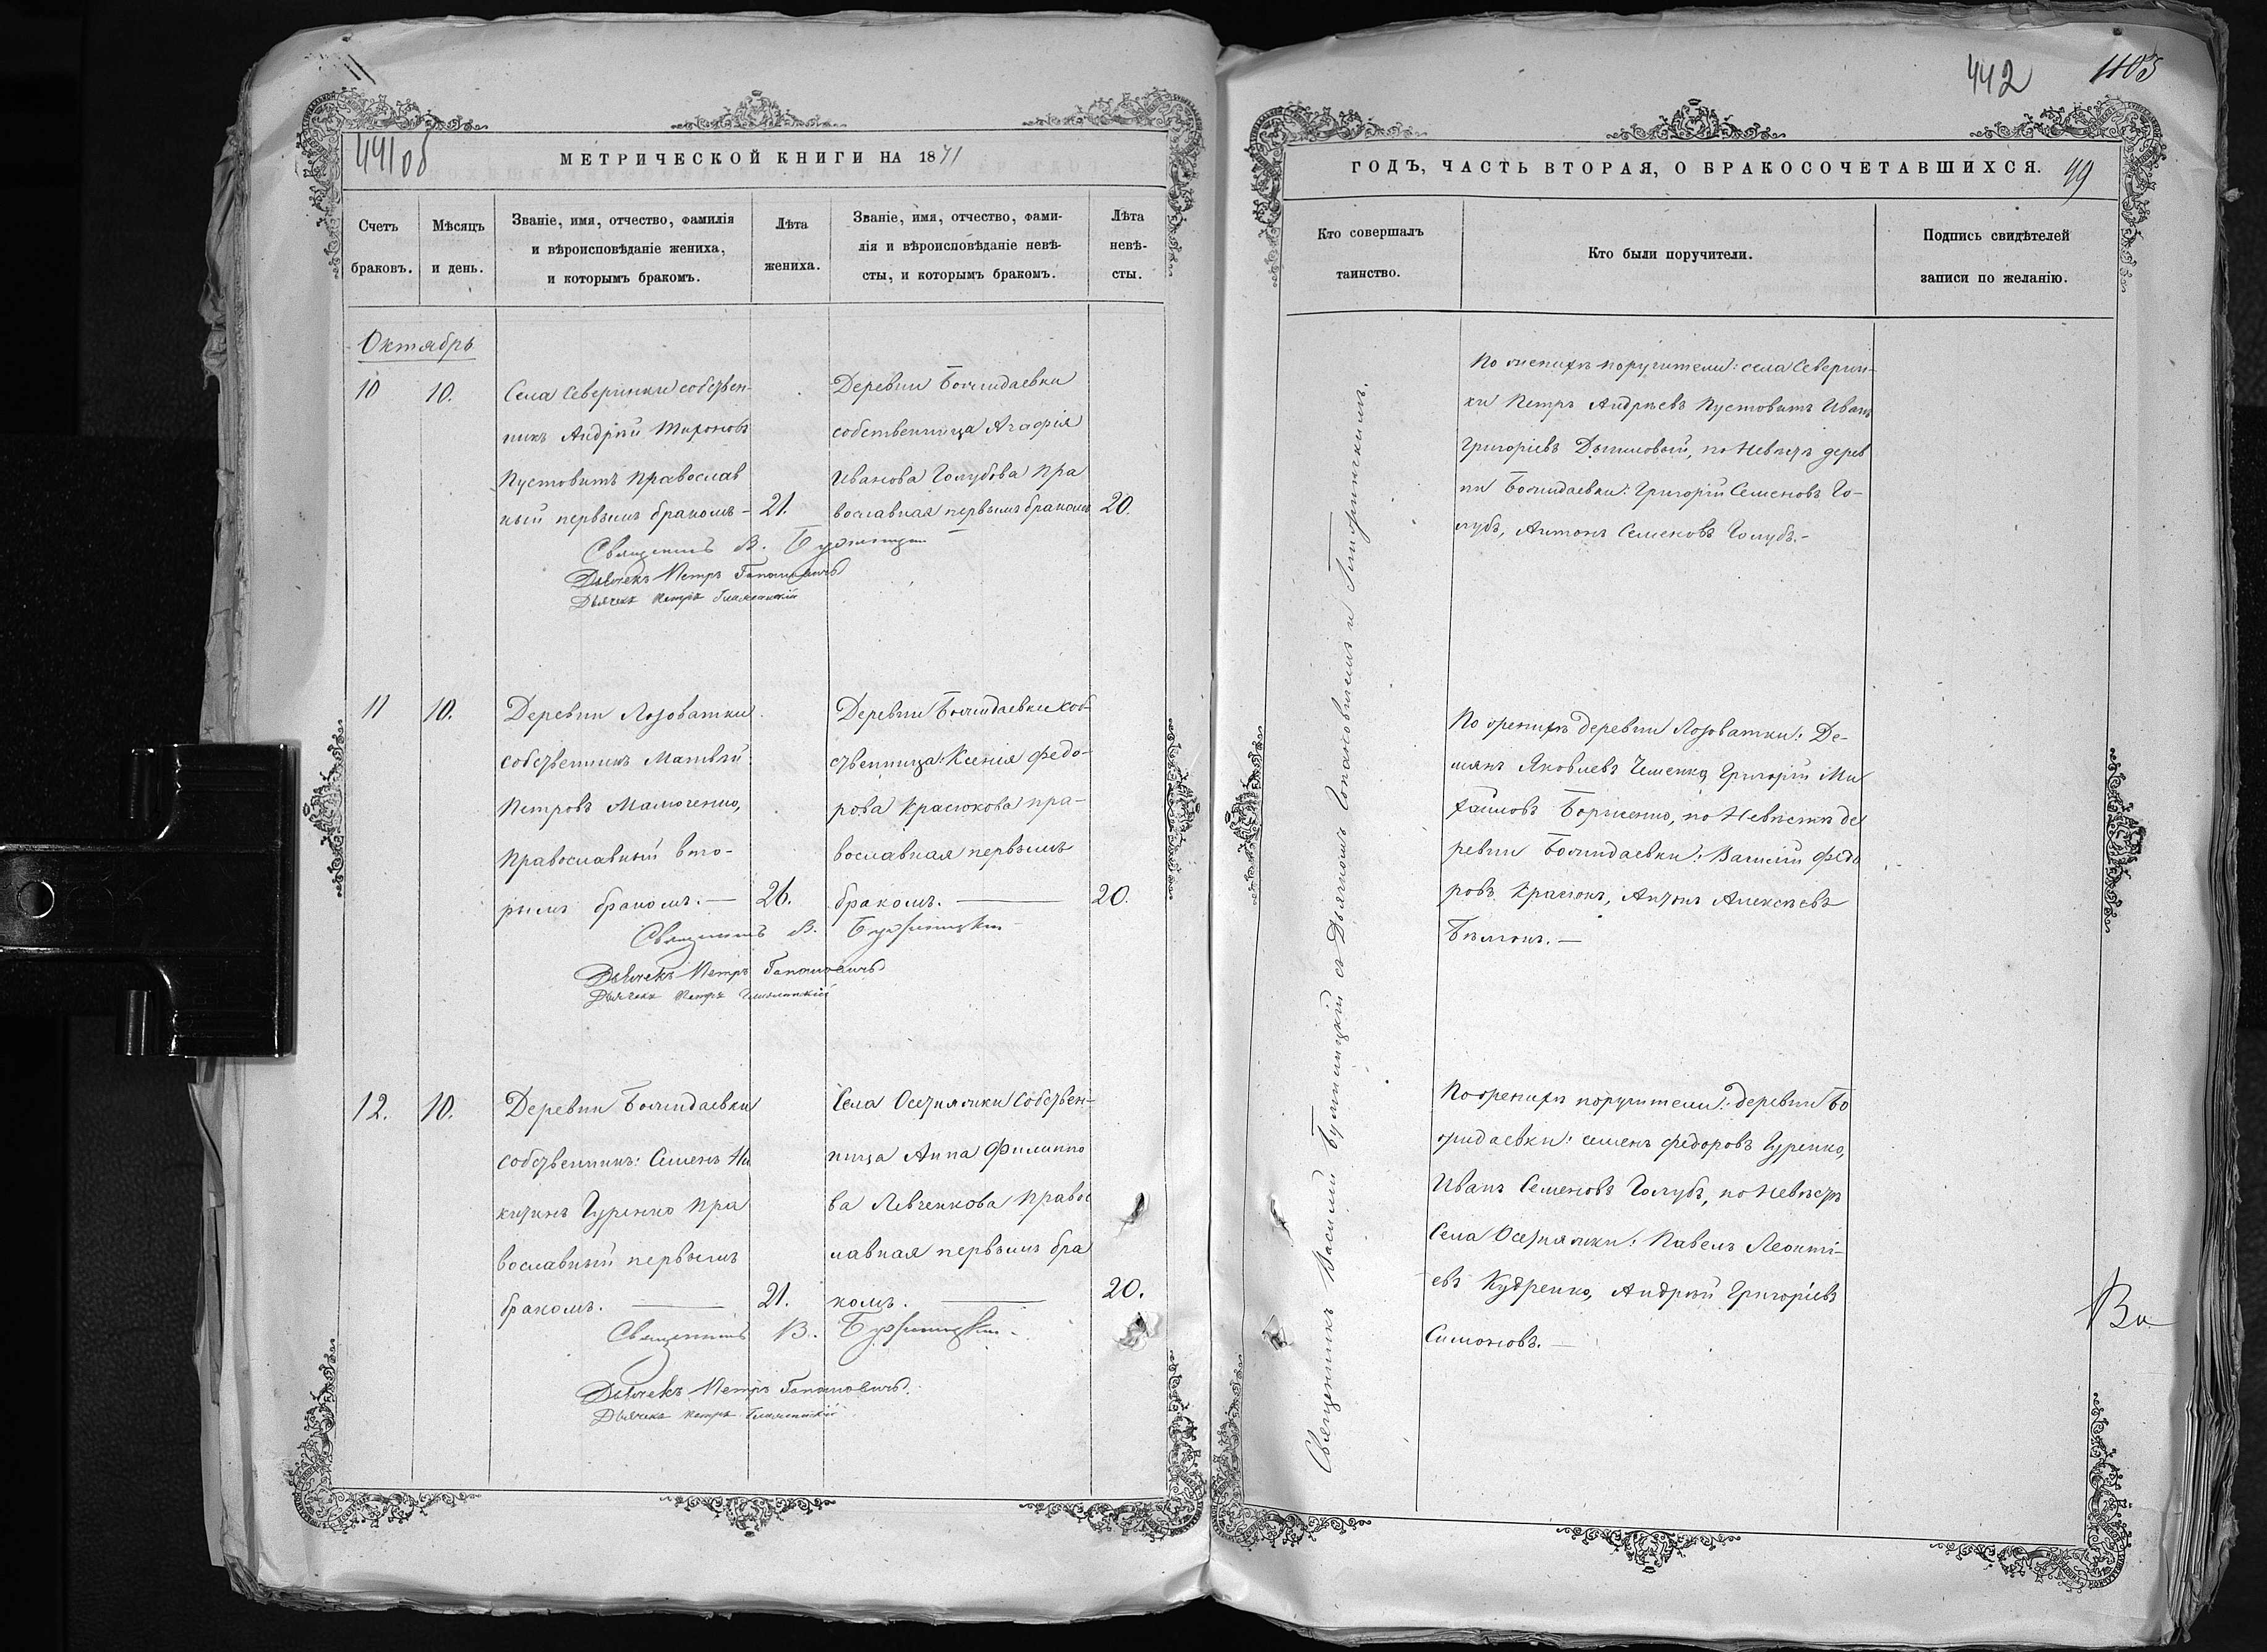 11
441об
МЕТРИЧЕСКОЙ КНИГИ НА 1871
Счетъ браковъ.
Мѣсяцъ и день.
Званіе, имя, отчество, фамилія
и вѣроисповѣданіе жениха,
и которымъ бракомъ.
Лѣта жениха.
Званіе, имя, отчество, фами-
лія и вѣроисповѣданіе невѣ-
сты, и которымъ бракомъ.
Лѣта
невѣ-
сты.
Октябрь
10
10.
Села Северинки собствен-
никъ Андрѣй Тихоновъ
Пустовитъ Православ
ный первымъ бракомъ-
21.
Деревни Божидаевки
собственница Агафія
Иванова Голубова Пра
вославная первымъ бракомъ
20.
Священникъ В.
Дьячекъ Петръ Гапановичъ
Дьячекъ Петръ
11
10.
Деревни Лозоватки
собственникъ Матвѣй
Петровъ
Православный вто-
рымъ бракомъ. —
26.
Деревни Божидаевки соб
ственница: Ксенія Федо-
рова Красюкова пра-
вославная первымъ
бракомъ. —
20.
Священникъ В.
Дьячекъ Петръ Гапановичъ
Дьячекъ Петръ
12.
10.
Деревни Божидаевки
собственникъ: Семенъ Ни
китинъ Гуренко Пра
вославный первымъ
бракомъ. —
21.
Села Осетняжки Собствен-
ница Анна Филиппо
ва Левченкова Правос
лавная первымъ бра
комъ. —
20.
Священникъ В.
Дьячекъ Петръ Гапановичъ
Дьячекъ Петръ
442
1103
ГОДЪ, ЧАСТЬ ВТОРАЯ, О БРАКОСОЧЕТАВШИХСЯ.
49
Кто совершалъ
таинство.
Кто были поручители.
Подпись свидѣтелей
записи по желанію.
Священникъ Василій с Дьячкомъ Гапановичемъ и
По женихѣ поручители: села Северин-
ки Петръ Андрѣевъ Пустовитъ Иванъ
Григоріевъ по Невѣстѣ дерев
ни Божидаевки: Григорій Семеновъ Го-
лубъ, Антонъ Семеновъ Голубъ.-
По женихѣ деревни Лозоватки: Де-
мянъ Яковлевъ Григорій Ми
хайловъ по Невѣстѣ де
ревни Божидаевки: Василій Федо
ровъ Красюкъ, Антонъ Алексѣевъ
По женихѣ поручители: деревни Бо
жидаевки: Семенъ Федоровъ Гуренко,
Иванъ Семеновъ Голубъ, по Невѣстѣ
Села Осетняжки: Павелъ Леонті-
евъ Кудренко, Андрѣй Григоріевъ
Симоновъ. —